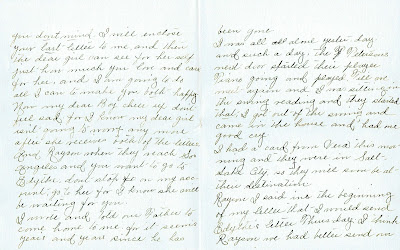 you dont mind I will enclose
your last letter to me and then
the dear girl can see for her self
just how much you love and care
for her, and I am going to do
all I can to make you both happy
Now my dear Boy cheer up dont
feel sad, for I know my dear girl
isnt going to worry any more
after she receives both of the letters
And Rayson when they reach Los
Angeles and you want to go to
Edythe, dont stop for on my acc-
ount; go to her for I know she will
be waiting for you.
I wrote and told our Father to
come home to me, for it seems
years and years since he has
been gone
I was all all alone yester day,
and such a day, the
next door started their player
Piano going and played till one
most again and I was sitting in
the swing reading and they started
that, I got out of the swing and
came in the house and had me
good cry.
I had a card from this mor-
ning and they were in Salt-
Lake City so they will soon be at
their destination.
Rayson I said in the beginning
of my letter that I would send
Edythe's letter Thursday. I think
Rayson we had better send on